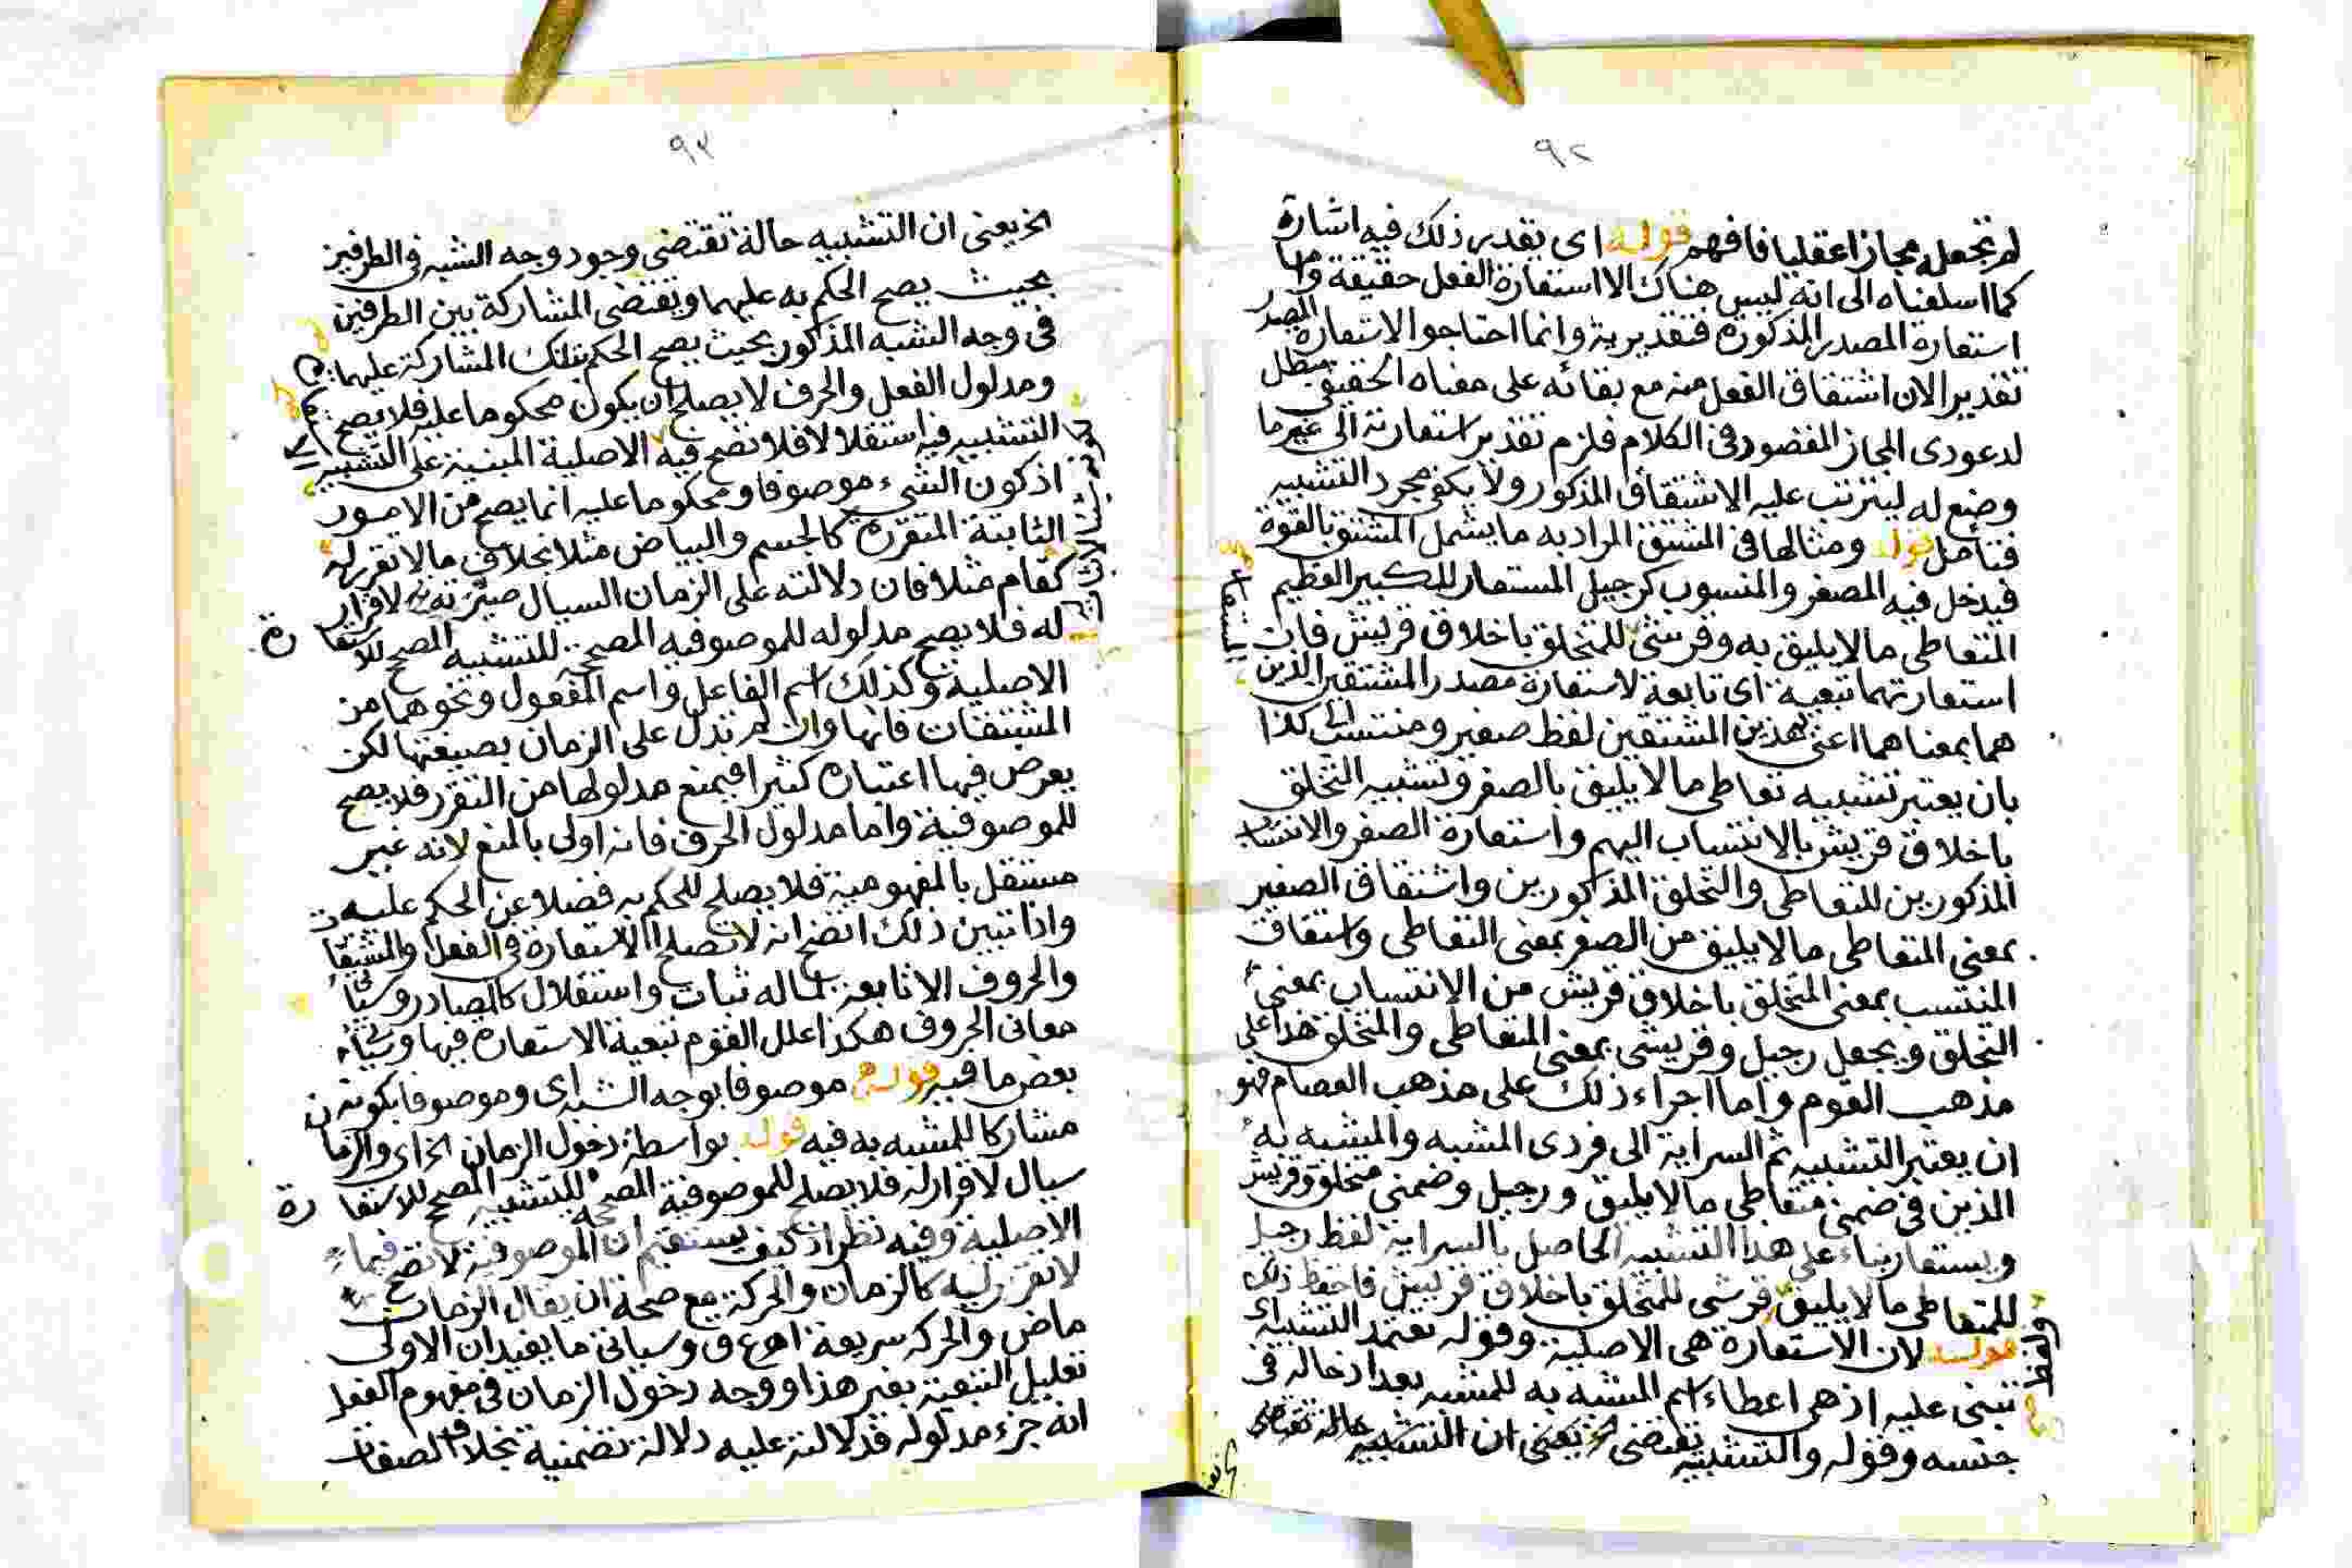 ٩٢
لم تجعله مجازا عقليا فافهم قوله اى يقدر ذلك فيه اشارة
كما اسلفناه الى انه ليس هناك الا استعارة الفعل حقيقة واما
استعارة المصدر المذكورة فتقديرية وانما احتاجوا الاستعارة المصدر
تقديرا لان اشتقاق الفعل منه مع بقائه على معناه الحقيقى مبطل
لدعوى المجاز المقصود فى الكلام فلزم تقدير استعارته الى غير ما
وضع له ليترتب عليه الاشتقاق المذكور ولا يكفى مجرد التشبيه
فتامل قوله ومثالها فى المشتق المراد به ما يشمل المشتق بالقوة
فيدخل فيه المصغر والمنسوب كرجيل المستعار للكبير العظيم
المتعاطى ما لا يليق به وقرشى للمتخلق باخلاق قريش فان
استعارتهما تبعية اى تابعة لاستعارة مصدر المشتقين الذين
هما بمعناهما اعنى بهذين المشتقين لفظ صغير ومنتسب الى كذا
بان يعتبر تشبيه تعاطى ما لا يليق بالصغر وتشبيه التخلق
باخلاق قريش بالانتساب اليهم واستعارة الصغر والانتساب
المذكورين للتعاطى والتخلق المذكورين واشتقاق الصغير
بمعنى المتعاطى ما لا يليق من الصغر بمعنى التعاطى واشتقاق
المنتسب بمعنى المتخلق باخلاق قريش من الانتساب بمعنى
التخلق ويجعل رجيل وقريشى بمعنى المتعاطى والمتخلق هذا على
مذهب القوم واما اجراء ذلك على مذهب العصام فهو
ان يعتبر التشبيه ثم السراية الى فردى المشبه والمشبه به
الذين فى ضمنى متعاطى ما لا يليق ورجيل وضمنى متخلق وقريش
ويستعار بناء على هذا التشبيه الحاصل بالسراية لفظ رجيل
للمتعاطى ما لا يليق وقرشى للمتخلق باخلاق قريش فاحفظ ذلك
قوله لان الاستعارة هى الاصلية وقوله تعتمد التشبيه اى
تبنى عليه اذ هى اعطاء اسم المشبه به للمشبه بعد ادخاله فى
جنسه وقوله والتشبيه يقتضى الخ يعنى ان التشبيه حالة تقتضى
٩٣
الخ يعنى ان التشبيه حالة تقتضى وجود وجه الشبه فى الطرفين
بحيث يصح الحكم به عليهما ويقتضى المشاركة بين الطرفين
فى وجه الشبه المذكور بحيث يصح الحكم بتلك المشاركة عليهما
ومدلول الفعل والحرف لا يصلح ان يكون محكوما عليه فلا يصح
التشبيه فيه استقلالا فلا تصح فيه الاصلية المبنية على التشبيه
اذ كون الشىء موصوفا ومحكوما عليه انما يصح من الامور
الثابتة المتقررة كالجسم والبياض مثلا بخلاف ما لا تقرر له
كقام مثلا فان دلالته على الزمان السيال صيرته لا قرار
له فلا يصح مدلوله للموصوفية المصححة للتشبيه المصحح للاستعارة
الاصلية وكذلك اسم الفاعل واسم المفعول ونحوهما من
المشتقات فانها وان لم تدل على الزمان بصيغتها لكن
يعرض فيها اعتباره كثيرا فيمنع مدلولها من التقرر فلا يصح
للموصوفية واما مدلول الحرف فانه اولى بالمنع لانه غير
مستقل بالمفهومية فلا يصلح للحكم به فضلا عن الحكم عليه
واذا تبين ذلك اتضح انه لا تصلح الاستعارة فى الفعل والمشتقات
والحروف الا تابعة لما له ثبات واستقلال كالمصادر وسيأتى
معانى الحروف هكذا علل القوم تبعية الاستعارة فيها وسيأتى
بعض ما فيه قوله موصوفا بوجه الشبه اى وموصوفا بكونه
مشاركا للمشبه به فيه قوله بواسطة دخول الزمان الخ اى والزمان
سيال لا قرار له فلا يصلح للموصوفية المصححة للتشبيه المصحح للاستعارة
الاصلية وفيه نظر اذ كيف يستقيم ان الموصوفية لا تصح فيما
لا تقرر له كالزمان والحركة مع صحة ان يقال الزمان
ماض والحركة سريعة اهـ ع ق وسياتى ما يفيد ان الاولى
تعليل التبعية بغير هذا ووجه دخول الزمان فى مفهوم الفعل
انه جزء مدلوله فدلالته عليه دلالة تضمنية بخلاف الصفات